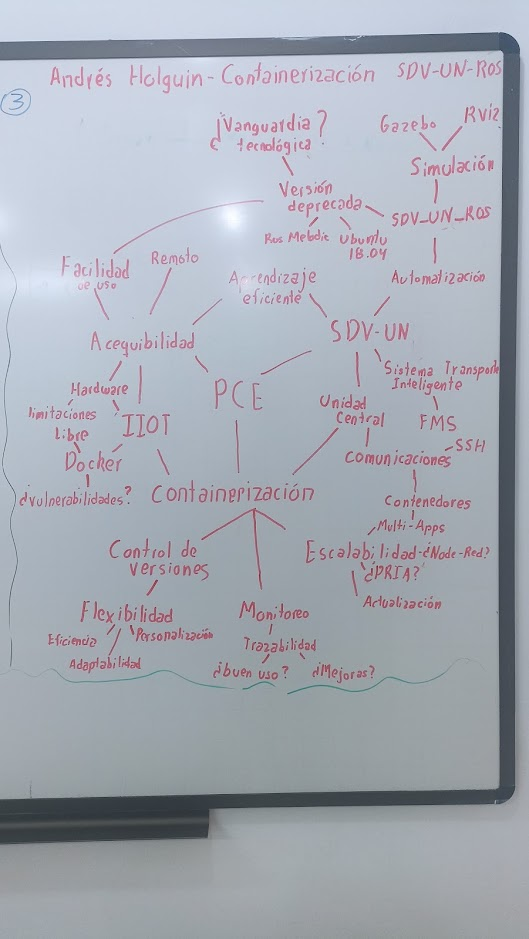 Andrés Holguin - Containerización SDV-UN-ROS
3
¿Vanguardia
tecnológica?
Gazebo
Rviz
Simulación
Versión
deprecada
SDV_UN_ROS
Ros Melodic
Ubuntu
18.04
Facilidad
de uso
Remoto
Aprendizaje
eficiente
Automatización
Acequibilidad
SDV-UN
Hardware
PCE
Sistema Transporte
Inteligente
limitaciones
Libre
IIOT
Unidad
Central
FMS
Docker
Comunicaciones
SSH
¿vulnerabilidades?
Containerización
Contenedores
Multi-Apps
Control de
versiones
Escalabilidad-¿Node-Red?
¿DRIA?
Actualización
Flexibilidad
Eficiencia
Personalización
Adaptabilidad
Monitoreo
Trazabilidad
¿buen uso?
¿Mejoras?